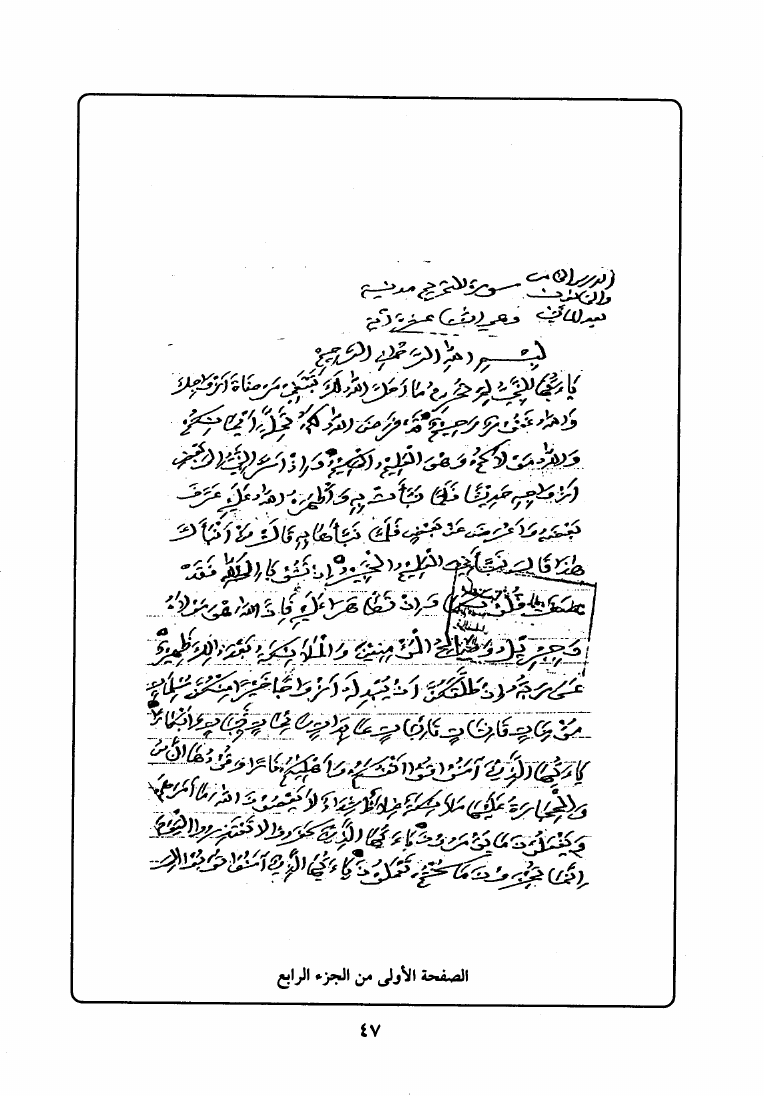 الدرس الثامن سورة التحريم مدنية
بعد المائتين وهي اثنتا عشرة آية
بسم الله الرحمن الرحيم
يا أيها النبي لم تحرم ما أحل الله لك تبتغي مرضاة أزواجك
والله غفور رحيم قد فرض الله لكم تحلة أيمانكم
والله مولاكم وهو العليم الحكيم وإذ أسر النبي إلى بعض
أزواجه حديثا فلما نبأت به وأظهره الله عليه عرف
بعضه وأعرض عن بعض فلما نبأها به قالت من أنبأك
هذا قال نبأني العليم الخبير إن تتوبا إلى الله فقد
صغت قلوبكما وإن تظاهرا عليه فإن الله هو مولاه
وجبريل وصالح المؤمنين والملائكة بعد ذلك ظهير
عسى ربه إن طلقكن أن يبدله أزواجا خيرا منكن مسلمات
مؤمنات قانتات تائبات عابدات سائحات ثيبات وأبكارا
يا أيها الذين آمنوا قوا أنفسكم وأهليكم نارا وقودها الناس
والحجارة عليها ملائكة غلاظ شداد لا يعصون الله ما أمرهم
ويفعلون ما يؤمرون يا أيها الذين كفروا لا تعتذروا اليوم
إنما تجزون ما كنتم تعملون يا أيها الذين آمنوا توبوا إلى
الصفحة الأولى من الجزء الرابع
٤٧